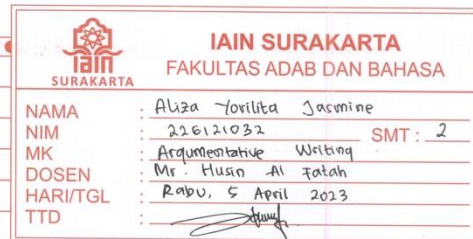 iain
SURAKARTA
IAIN SURAKARTA
FAKULTAS ADAB DAN BAHASA
NAMA : Aliza Yorilita Jasmine
NIM : 226121032 SMT : 2
MK : Argumentative Writing
DOSEN : Mr. Husin Al Fatah
HARI/TGL : Rabu, 5 April 2023
TTD :